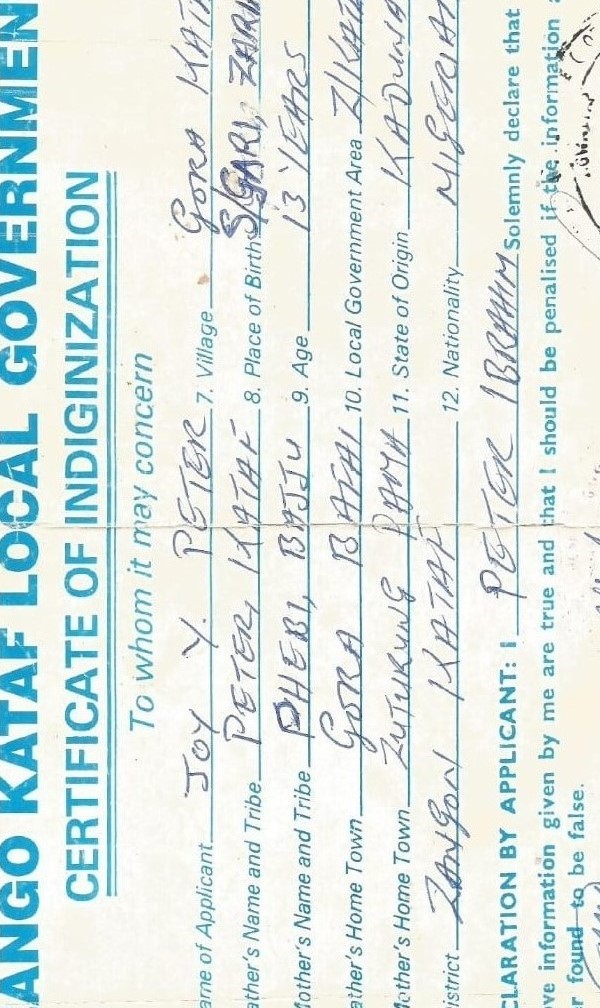 ANGO KATAF LOCAL GOVERNMEN
CERTIFICATE OF INDIGINIZATION
To whom it may concern
ame of Applicant JOY Y. PETER 7. Village GORA KATA
ather's Name and Tribe PETER, KATAF 8. Place of Birth S/GARI, ZARI
Mother's Name and Tribe PHEBI, BAJJU 9. Age 13 YEARS
ather's Home Town GORA BAFAI 10. Local Government Area Z/KATA
other's Home Town ZUTURUNG 11. State of Origin KADUNA
istrict ZANGON KATAF 12. Nationality NIGERIAN
CLARATION BY APPLICANT: I PETER IBRAHIM Solemnly declare that
re information given by me are true and that I should be penalised if the information a
r found to be false.